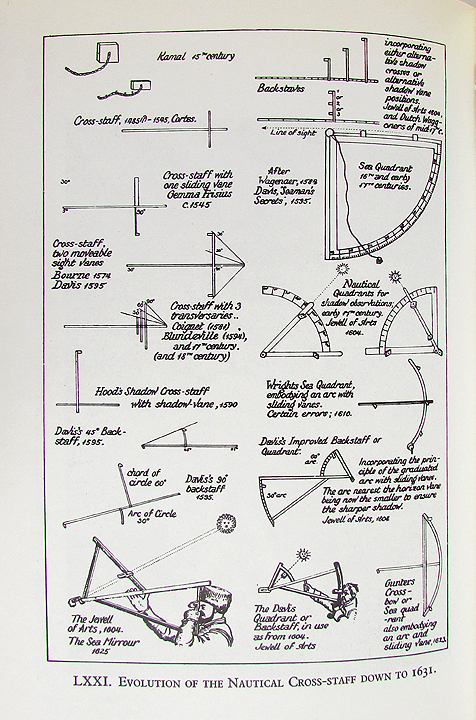 Kamal 15ᵀᴴ century
Cross-staff, 1485(?) - 1545, Cortes.
Cross-staff with
one sliding vane
Gemma Frisius
c.1545
30°
3°
90°
Cross-staff,
two moveable
sight vanes
Bourne 1574
Davis 1595
Cross-staff with 3
transversaries..
Coignet (1581)
Blundeville (1594),
and 17ᵀᴴ century.
(and 18ᵀᴴ century)
Hood's Shadow Cross-staff
with shadow-vane, 1590
Davis's 45° Back-
staff, 1595.
chord of
circle 60°
Arc of Circle
30°
Davis's 90°
backstaff
1595.
The Jewell
of Arts, 1604.
The Sea Mirrour
1625
Backstaves
incorporating
either alterna-
tive shadow
crosses or
alternative
shadow vane
positions.
Jewell of Arts 1604.
and Dutch Wagg-
oners of mid-17ᵀᴴ c.
1
or
2
or
3
Line of sight
After
Wagenaer, 1584
Davis, 'Seaman's
Secrets', 1595.
Sea Quadrant
16ᵀᴴ and early
17ᵀᴴ centuries.
Nautical
Quadrants for
shadow observations;
early 17ᵀᴴ century.
Jewell of Arts
1604.
Wrights Sea Quadrant,
embodying an arc with
sliding vanes.
Certain errors; 1610.
Davis's Improved Backstaff or
Quadrant.
60°
arc.
30° arc
Incorporating the prin-
ciple of the graduated
arc with sliding vanes.
The arc nearest the horizon vane
being now the smaller to ensure
the sharper shadow.
Jewell of Arts, 1604
The Davis
Quadrant or
Backstaff, in use
as from 1604.
Jewell of Arts
Gunters
Cross-
bow or
Sea quad
-rant
also embodying
an arc and
sliding vane, 1623.
LXXI. Evolution of the Nautical Cross-staff down to 1631.